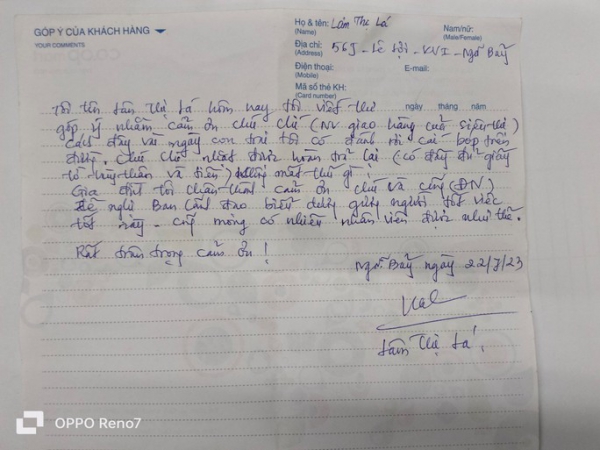 GÓP Ý CỦA KHÁCH HÀNG
YOUR COMMENTS
Họ & tên: Lâm Thị Lá
(Name)
Nam/nữ:
(Male/Female)
Địa chỉ: 565 - Lê Lợi - KVI - Ngã Bảy
(Address)
Điện thoại:
(Mobile)
E-mail:
Mã số thẻ KH:
(Card number)
ngày tháng năm
Tôi tên Lâm Thị Lá hôm nay tôi viết thư
góp ý nhằm cảm ơn chú (NV giao hàng của siêu thị)
Cách đây vài ngày con trai tôi có đánh rơi cái bóp trên
đường. Chú nhặt được hoàn trả lại (có đầy đủ giấy
tờ tùy thân và tiền) không mất thứ gì!
Gia đình tôi chân thành cảm ơn chú và cũng (ĐN)
Đề nghị Ban lãnh đạo biểu dương người tốt việc
tốt này. cũng mong có nhiều nhân viên được như thế.
Rất trân trọng cảm ơn!
Ngã Bảy ngày 22/7/23
Lâm Thị Lá.
OPPO Reno7